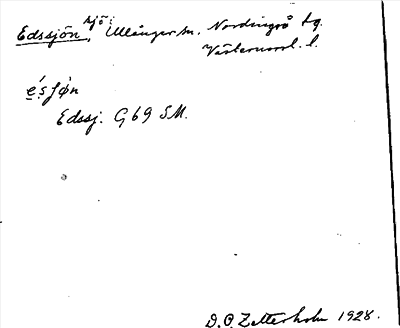 Edssjön, sjö i Ullånger sn, Nordingrå tg.
Västernorrl. l.
é́sʃǿn
Edssj. G 69 SM.
D. O. Zetterholm 1928.